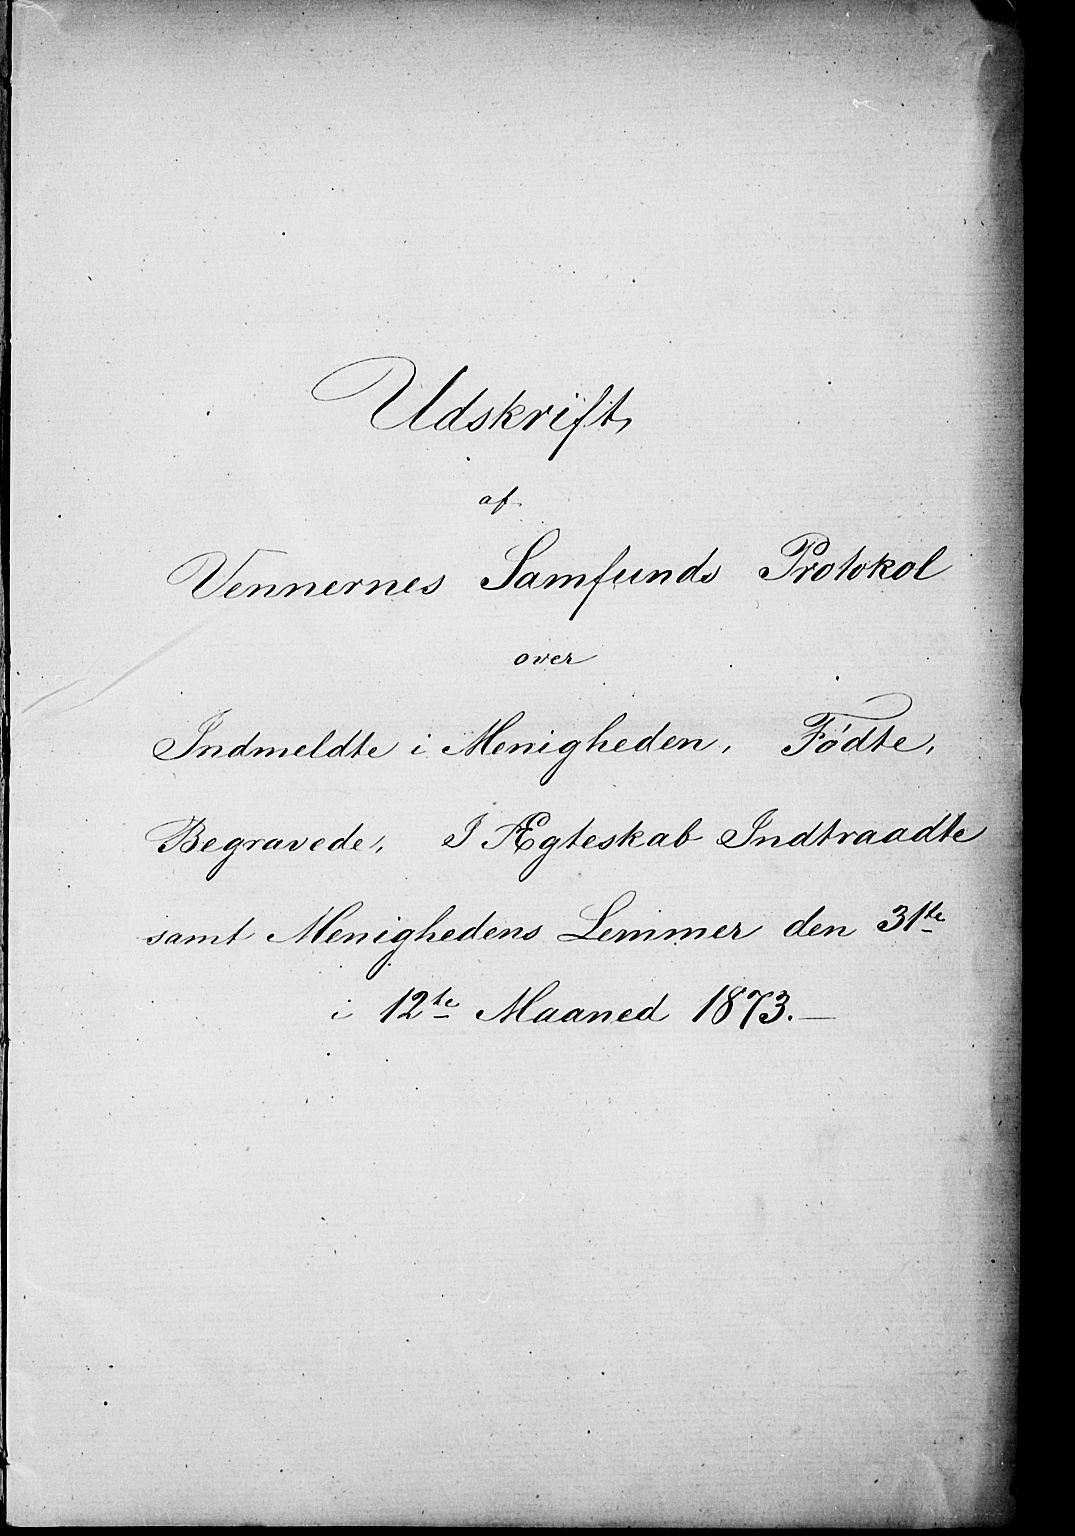 Udskrift,
af
Vennernes Samfunds Protokol
over
Indmeldte i Menigheden, Fødte,
Begravede, I Ægteskab Indtraadte
samt Menighedens Lemmer den 31te
i 12te Maaned 1873.—